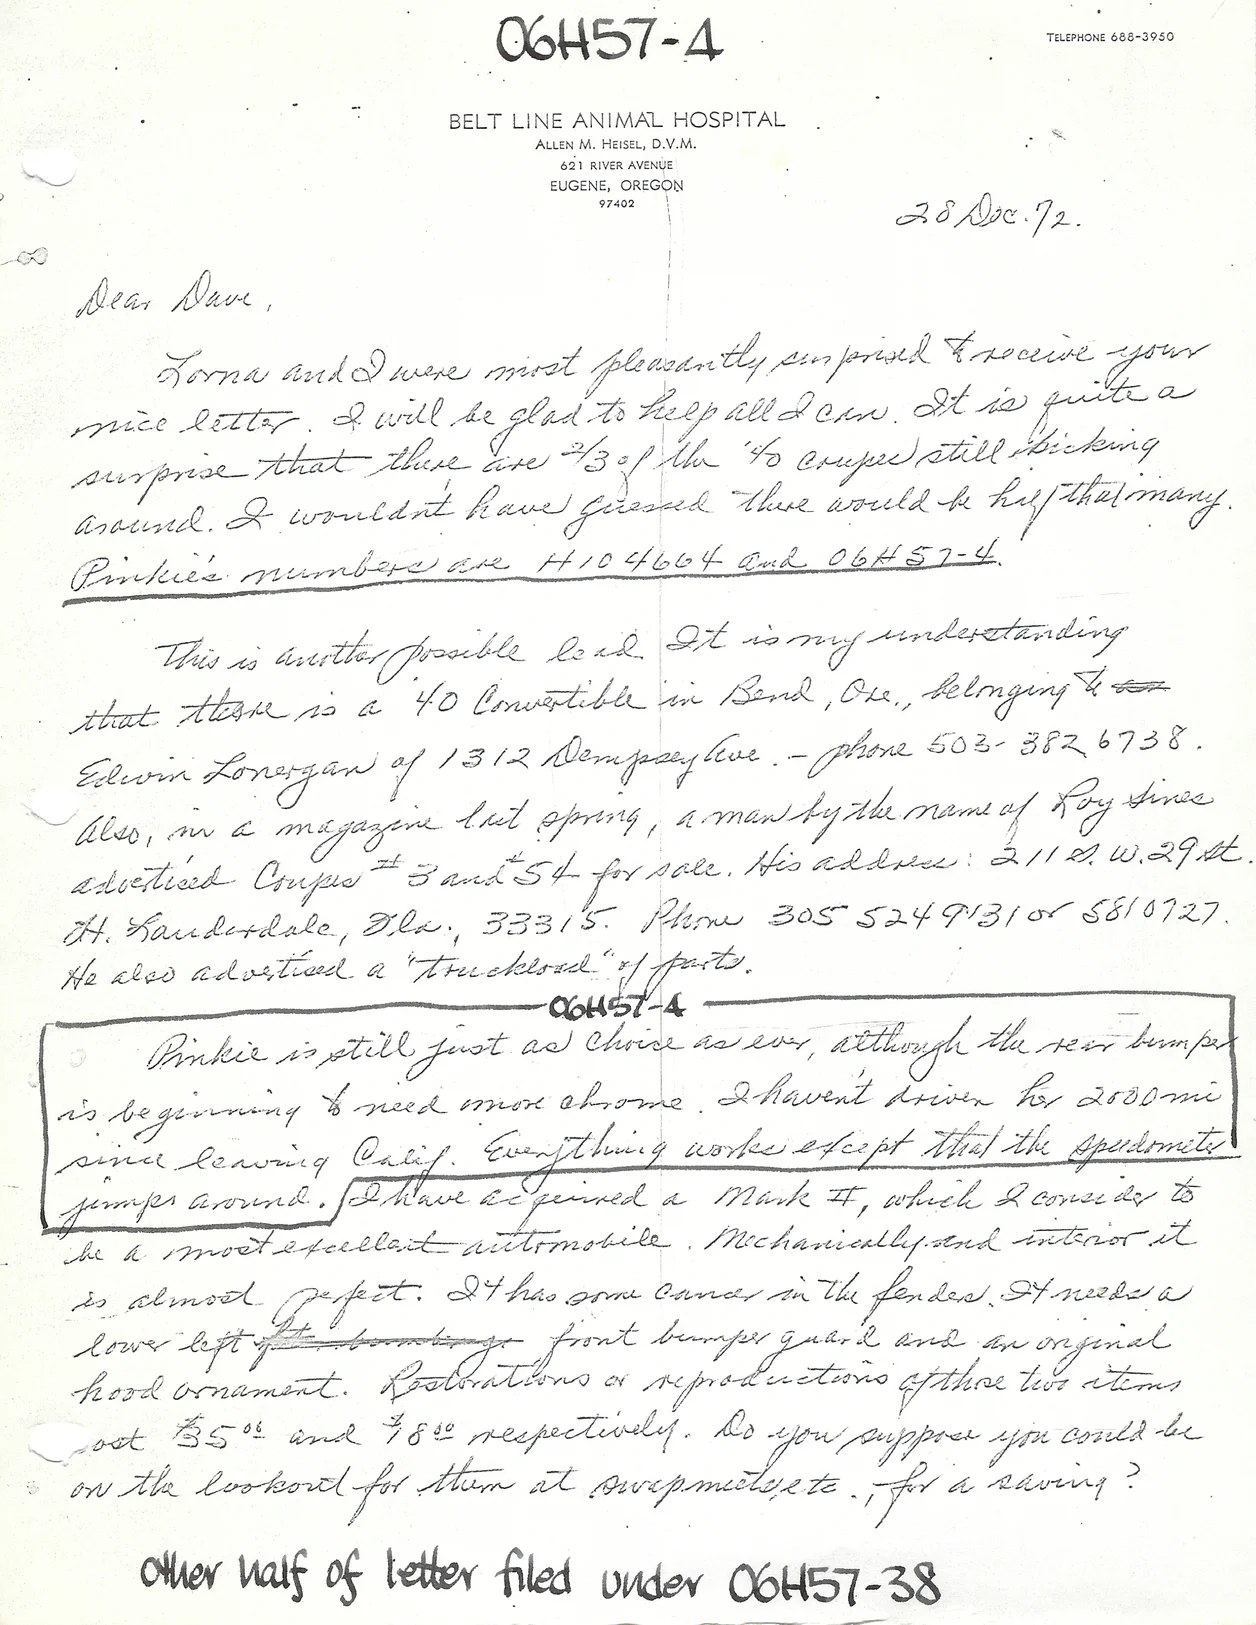 06H57-4
TELEPHONE 688-3950
BELT LINE ANIMAL HOSPITAL
ALLEN M. HEISEL, D.V.M.
621 RIVER AVENUE
EUGENE, OREGON
97402
28 Dec. 72.
Dear Dave,
Lorna and I were most pleasantly surprised to receive your
nice letter. I will be glad to help all I can. It is quite a
surprise that there are 2/3 of the '40 coupes still kicking
around. I wouldn't have guessed there would be half that many.
Pinkie's numbers are H104664 and 06H57-4.
This is another possible lead. It is my understanding
that there is a '40 Convertible in Bend, Ore., belonging to
Edwin Lonergan of 1312 Dempsey Ave. - phone 503-382 6738.
Also, in a magazine last spring, a man by the name of Roy Sines
advertised Coupes #3 and #54 for sale. His address: 211 S.W. 29 St.
Ft. Lauderdale, Fla., 33315. Phone 305 524 9131 or 581 0727.
He also advertised a "truckload" of parts.
06H57-4
Pinkie is still just as choice as ever, although the rear bumper
is beginning to need more chrome. I haven't driven her 2000 mi
since leaving Calif. Everything works except that the speedometer
jumps around. I have acquired a Mark II, which I consider to
be a most excellent automobile. Mechanically and interior it
is almost perfect. It has some cancer in the fender. It needs a
lower left front bumper guard and an original
hood ornament. Restorations or reproductions of those two items
cost $35.00 and $18.00 respectively. Do you suppose you could be
on the lookout for them at swap meets, etc., for a saving?
other half of letter filed under 06H57-38